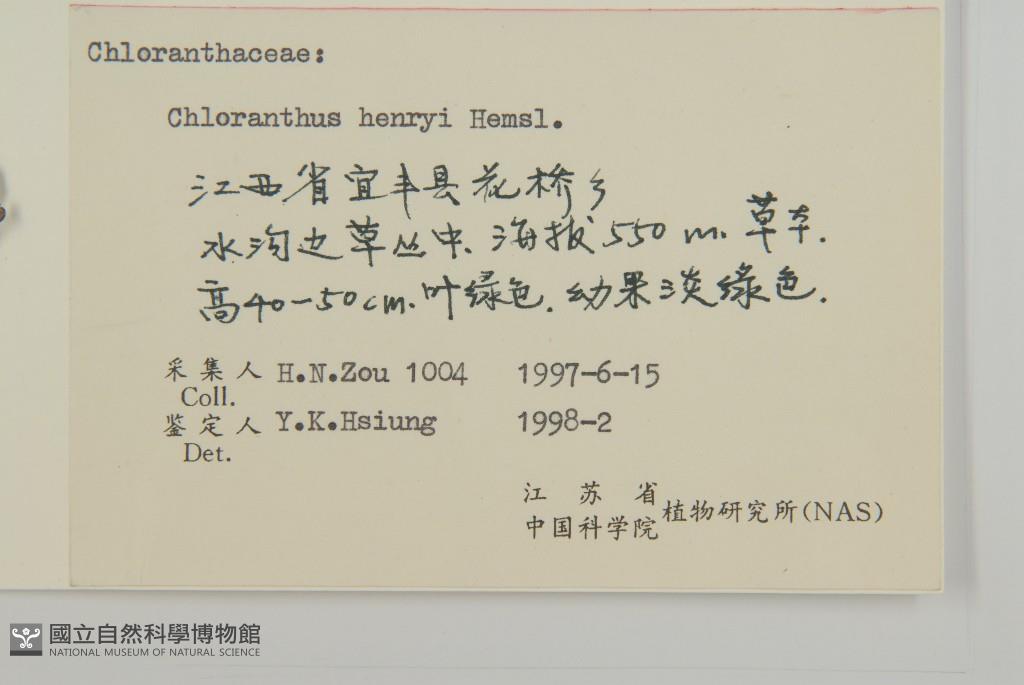 Chloranthaceae:
Chloranthus henryi Hemsl.
江西省宜丰县花桥乡
水沟边草丛中、海拔550 m. 草本.
高40-50cm. 叶绿色. 幼果淡绿色.
采集人 H.N.Zou 1004 1997-6-15
Coll.
鉴定人 Y.K.Hsiung 1998-2
Det.
江苏省
中国科学院 植物研究所(NAS)
國立自然科學博物館
NATIONAL MUSEUM OF NATURAL SCIENCE